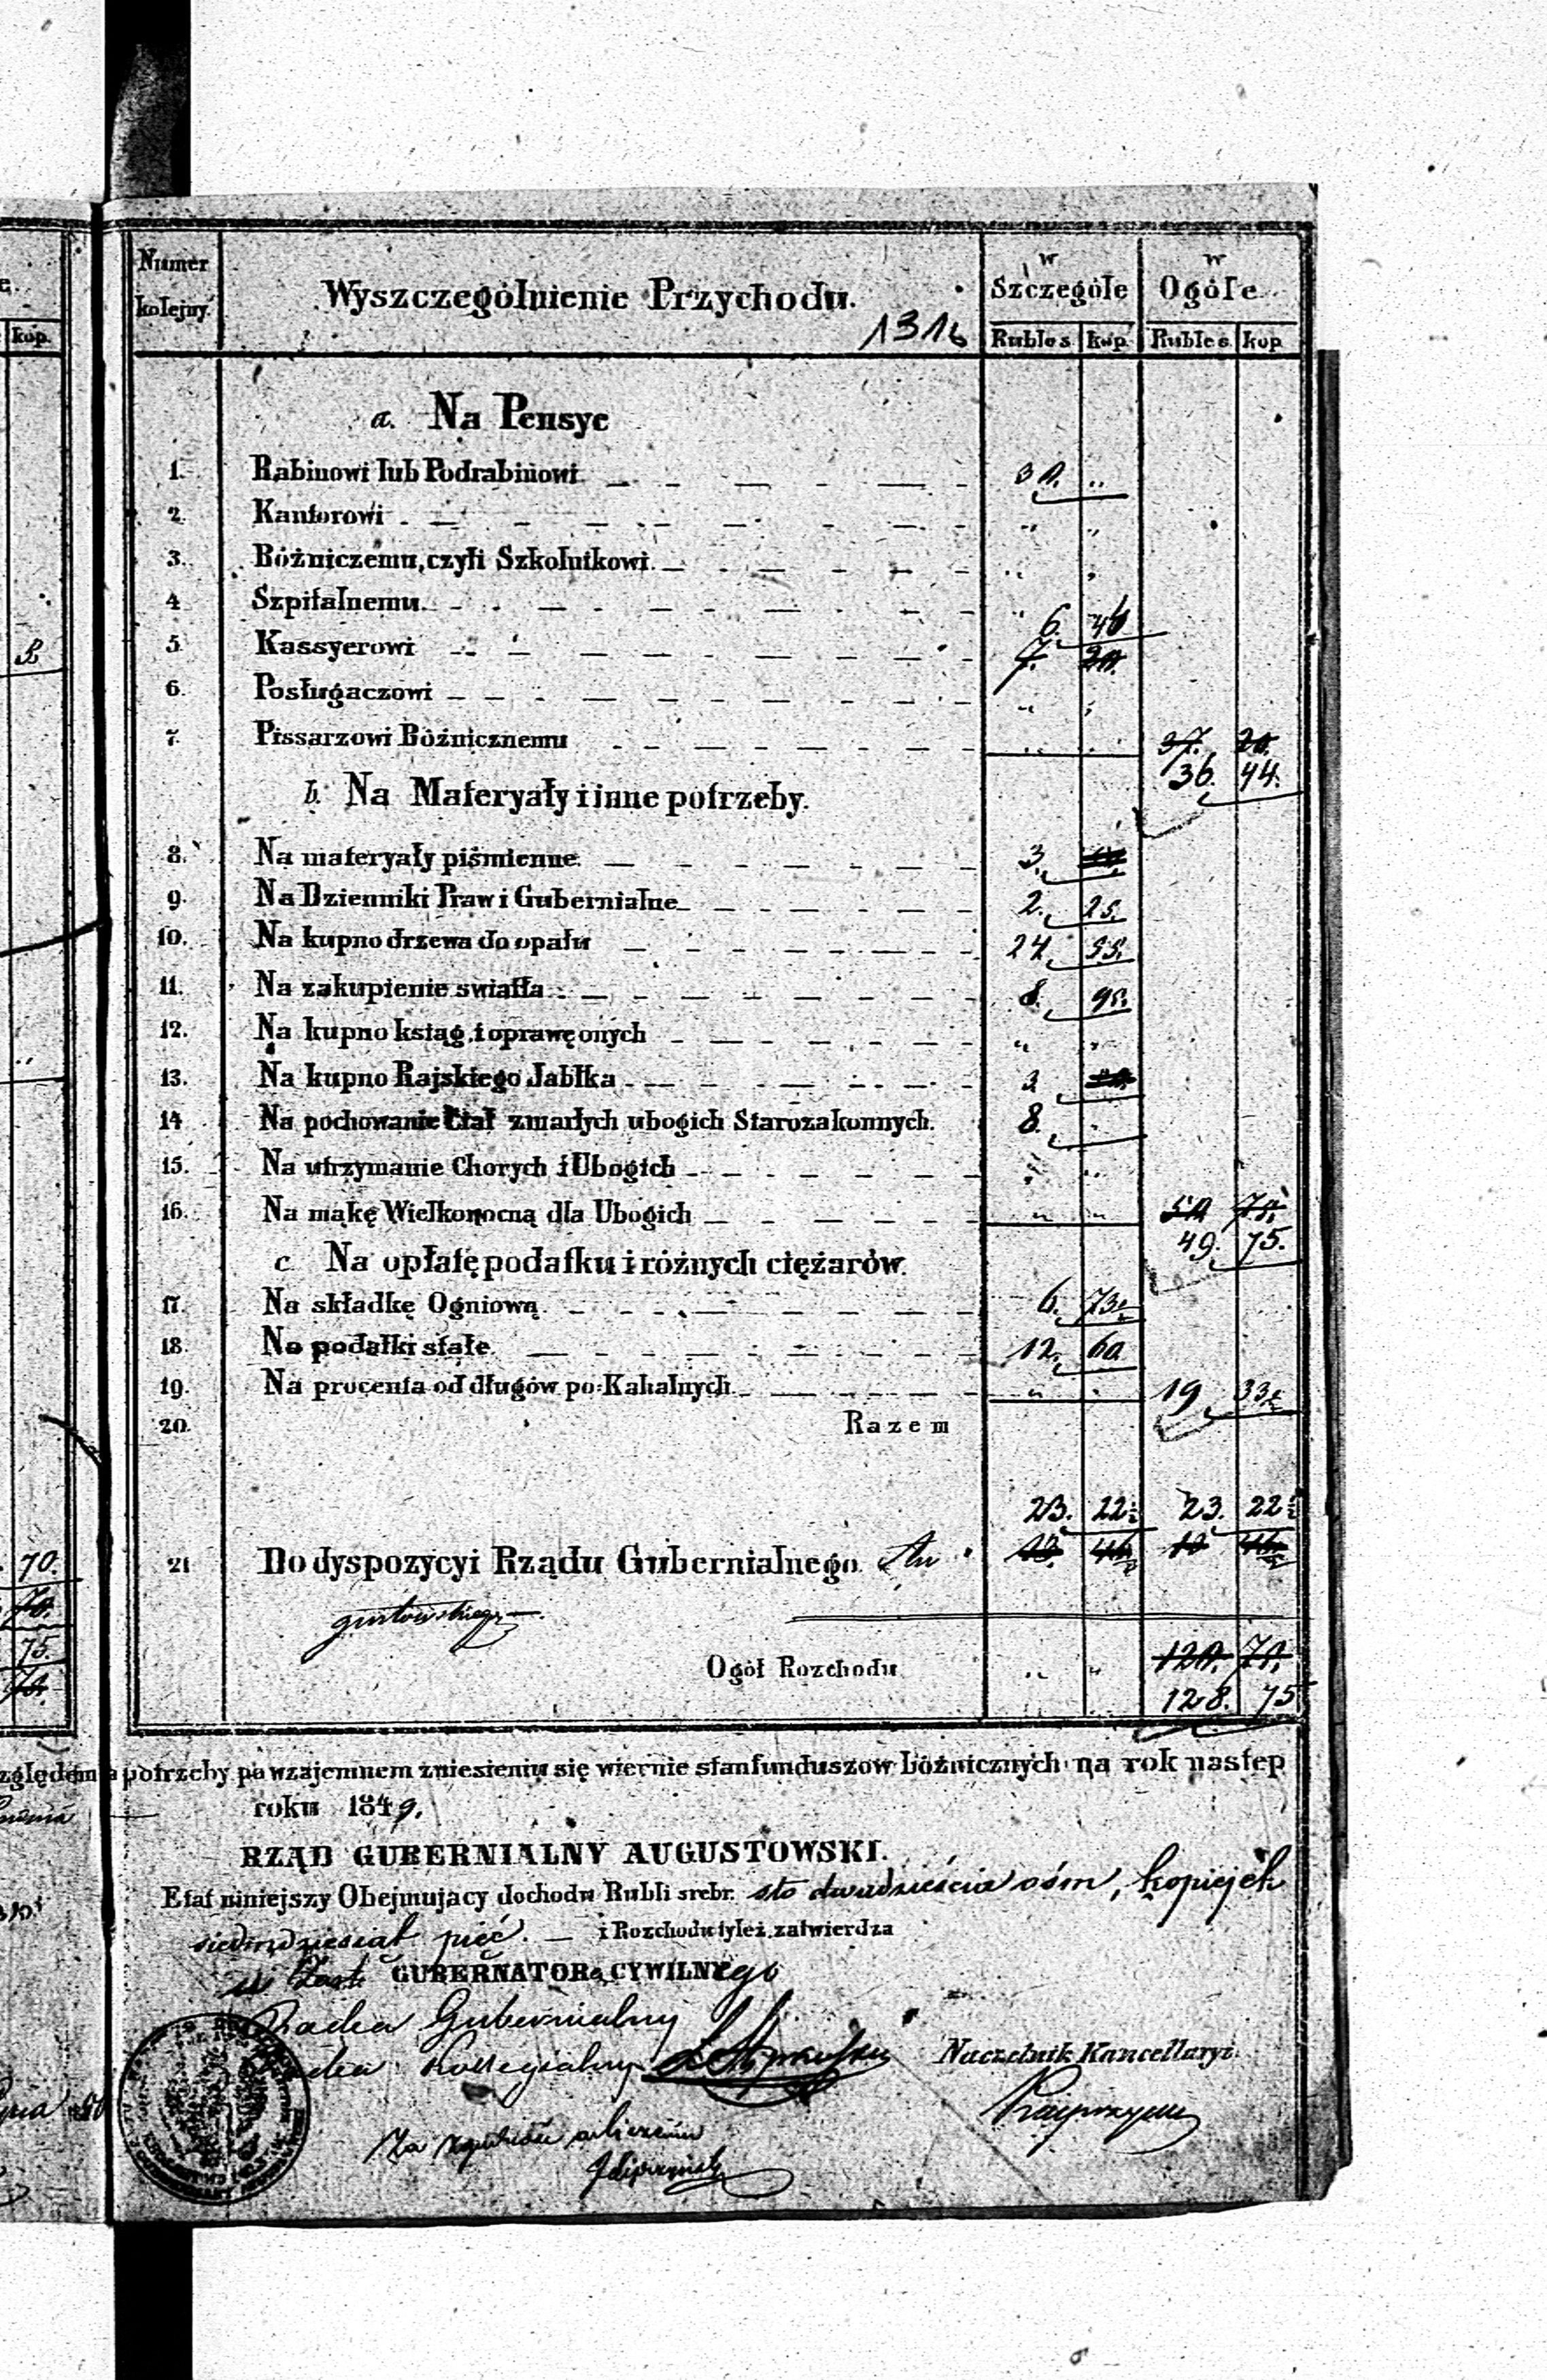 kop.
70.
75.
Numer kolejny
Wyszczególnienie Przychodu.
1316
w Szczególe
w Ogóle
Rubles kop. Rubles kop
a. Na Pensye
1. Rabinowi lub Podrabinowi 30. "
2. Kantorowi " "
3. Bóżniczemu, czyli Szkolnikowi " "
4 Szpitalnemu "
6. 44
5. Kassyerowi 7. 20.
6. Posługaczowi " "
7. Pissarzowi Bóżnicznemu " " 37. 20.
36. 44.
b. Na Materyały i inne potrzeby.
8. Na materyały piśmienne 3.
9. Na Dzienniki Praw i Gubernialne 2. 25.
10. Na kupno drzewa do opału 24. 55.
11. Na zakupienie swiatła 8. 95.
12. Na kupno ksiąg i oprawę onych " "
13. Na kupno Rajskiego Jabłka 3
14 Na pochowanie Ciał zmarłych ubogich Starozakonnych. 8. "
15. Na utrzymanie Chorych i Ubogich " "
16. Na mąkę Wielkonocną dla Ubogich " "
49. 75.
c Na opłatę podatku i różnych ciężarów.
17. Na składkę Ogniową 6. 73½
18. Na podatki stałe 12. 60
19. Na procenta od długów po-Kahalnych " " 19 33½
20. Razem
23. 22½ 23. 22½
21 Do dyspozycyi Rządu Gubernialnego Au
gustowskiego
Ogół Rozchodu " " 120. 70.
128. 75
potrzeby po wzajemnem zniesieniu się wiernie stan funduszow bóżnicznych na rok następ
roku 1849.
RZĄD GUBERNIALNY AUGUSTOWSKI.
Etat niniejszy Obejmujący dochodu Rubli srebr. sto dwadzieścia ośm, kopiejek
siedmdziesiąt pięć. i Rozchodu tyleż, zatwierdza
w Zast. GUBERNATORa CYWILNEgo
Radca Gubernialny
Radca Kollegialny
Naczelnik Kancellaryi
Za zgodność